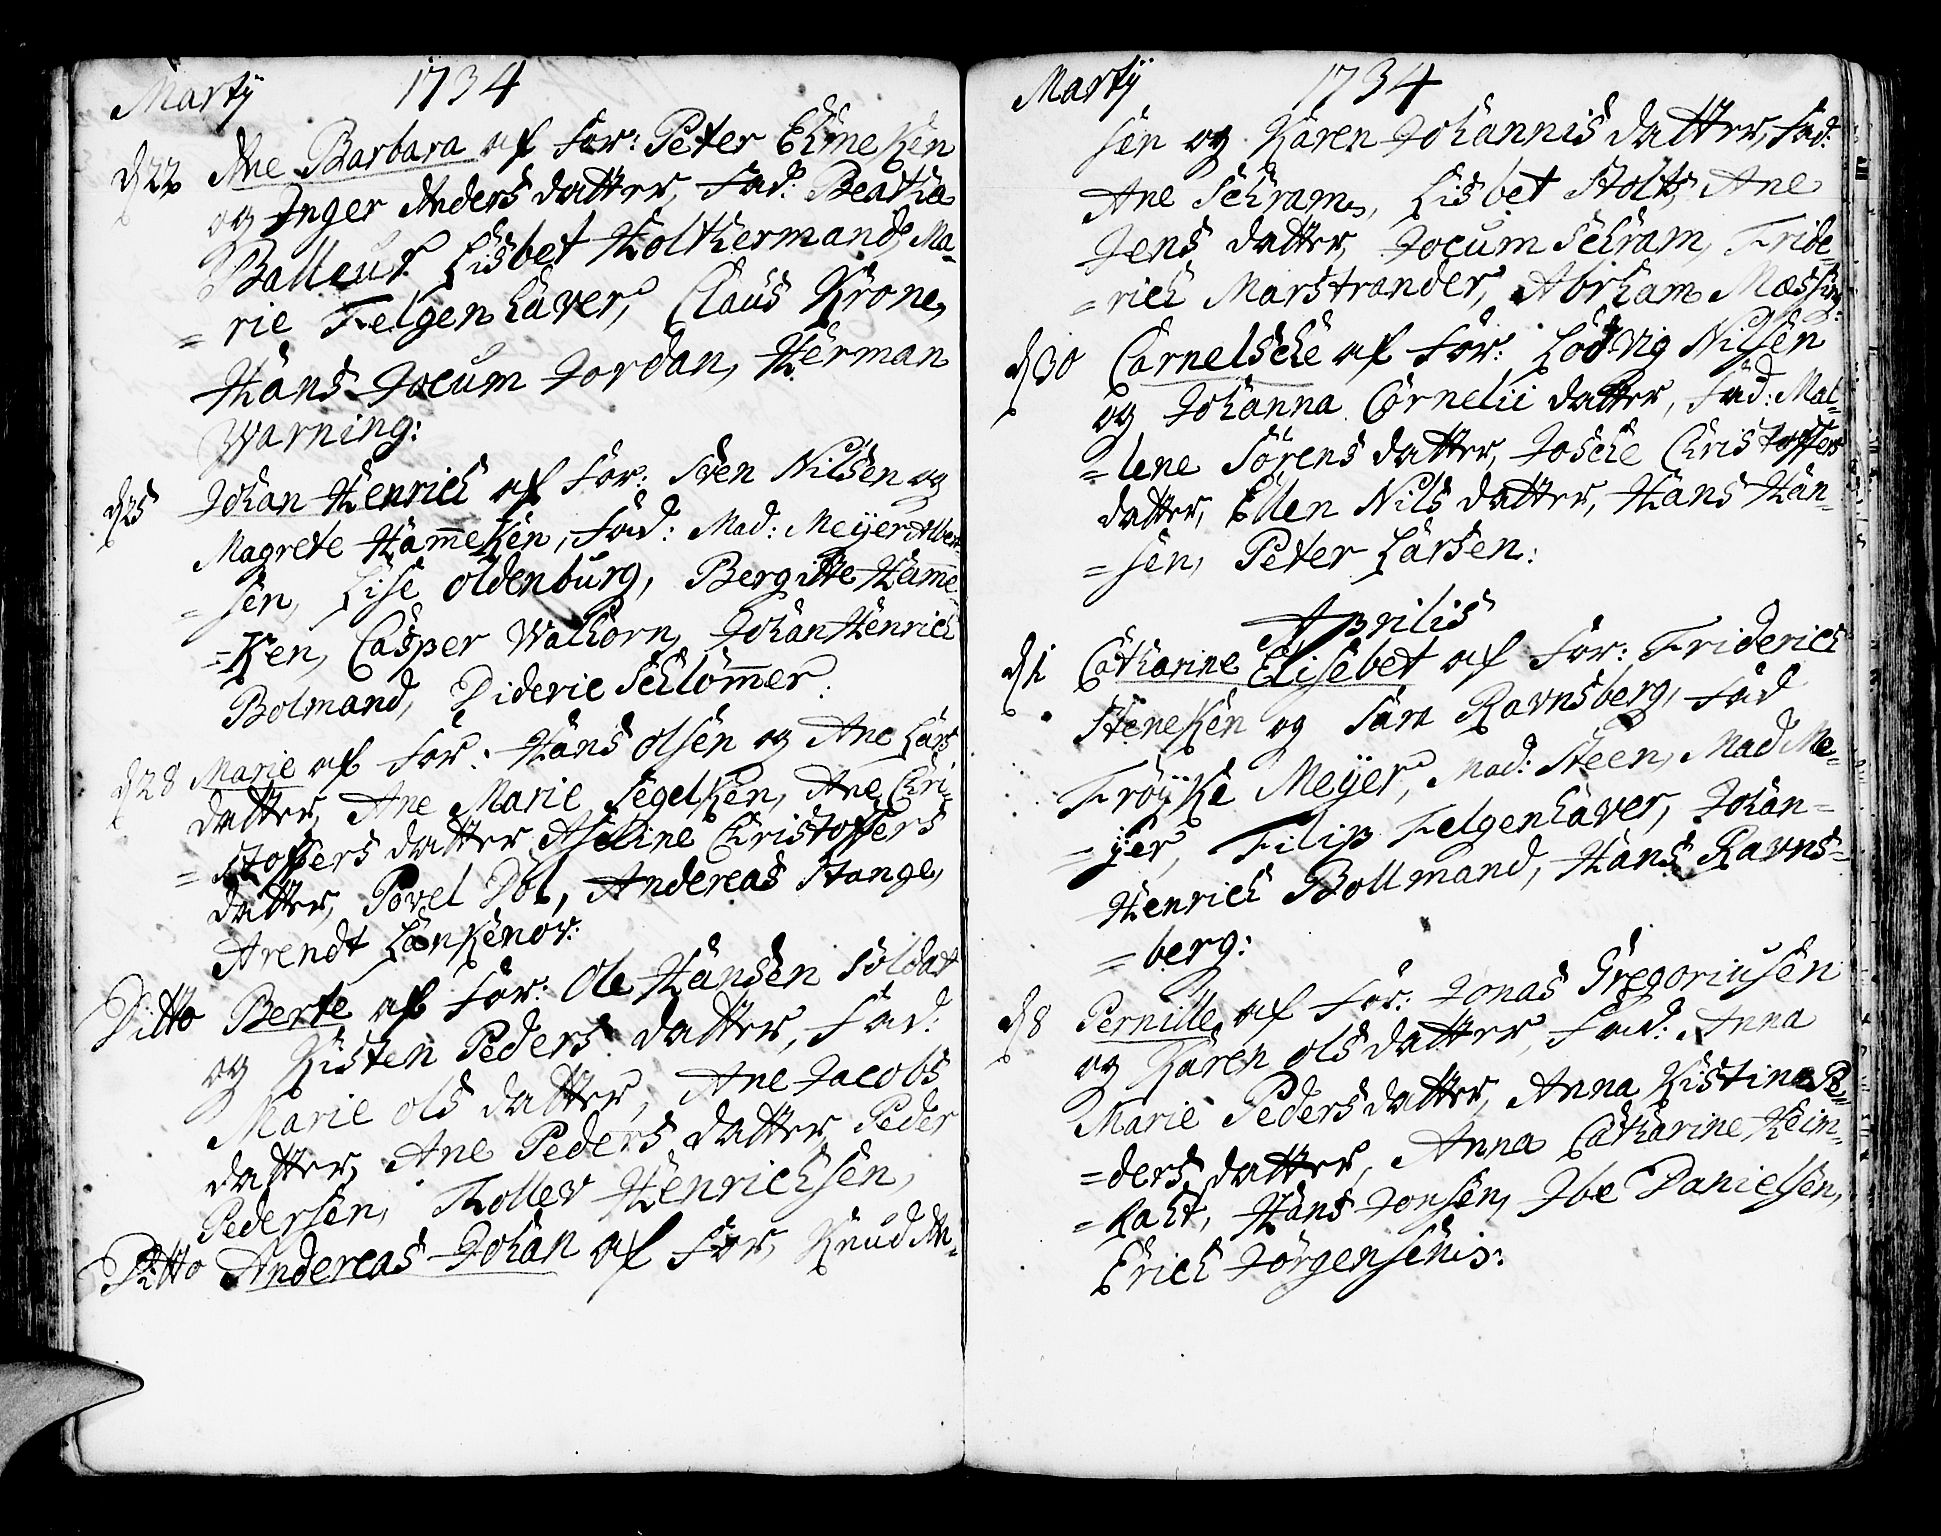 Martÿ 1734
d 22 Ane Barbara af For: Peter Ehmeken
og Inger Anders datter, Fad: Beatha
Balleur Lisbet Holthermand, Ma-
= rie Felgenhaver, Claus Krone,
Hans Jocum Jordan, Herman
Warning:
d 25 Johan Henrich af For: Sven Nilsen og
Magrete Ham̅eken, Fad: Mad: Meÿer Albert
= sen, Lise Oldenburg, Bergitte Ham̅e-
= ken, Casper Walhorn, Johan Henrich
Bolmand, Dideric Schlöm̅er.
d 28 Marie af For: Hans Olsen og Ane Lars
datter, Ane Marie Segelken, Ane Chri-
= stoffers datter Aseline Christoffers
datter, Povel Döl, Andereas Stange,
Arendt Lankenov:
Ditto Berte af For: Ole Hansen Soldat
og Kisten Peders datter, Fad:
Marie Ols datter, Ane Jacobs
datter, Ane Peders datter, Peder
Pedersen, Tollev Henrichsen,
Ditto Andereas Johan af For, Knud An-
Martÿ 1734
sen og Karen Johannis datter, Fad:
Ane Schram, Lisbet Stolt, Ane
Jens datter, Jocum Schram, Fride-
= rich Marstrander, Abrham Mæssing:
d 30 Cornelsche af For: Lodvig Nilsen
og Johanna Cornelii datter, Fad: Mal-
= lene Sörens datter, Josche Christoffers
datter, Ellen Nils datter, Hans Han-
= sen, Peter Larsen:
Aprilis
d 1 Catharine Elisebet af For: Friderich
Steneken og Sara Ravnsberg, Fad
Fröÿke Meÿer, Mad: Steen, Mad Me-
= ÿer, Filip Felgenhaver, Johan-
Henrich Bollmand, Hans Ravns-
= berg:
d 8 Pernille af For: Jonas Gregoriusen
og Karen Ols datter, Fad: Anna
Marie Peders datter, Anna Kistina Pe-
= ders datter, Anna Catharine Heim-
= raht, Hans Jonsen, Ibe Danielsen,
Erich Jörgensenis: